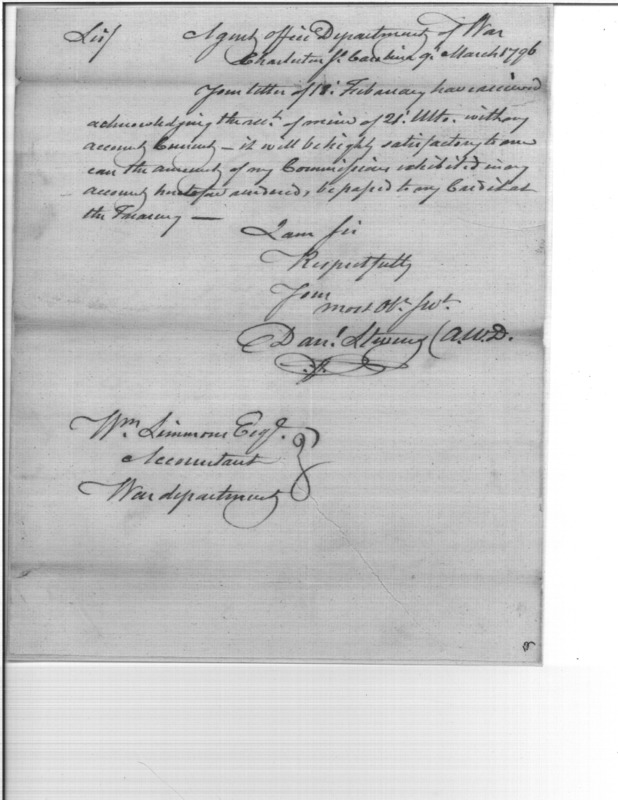 Sir/ Agent office Department of War
Charleston So. Carolina 9th March 1796
Your letter of 18th February have received
acknowledging the rect. of mine of 21st Ulto. with my
account Current — it will be highly satisfactory to me
can the amount of my Commissions exhibited in my
account heretofore rendered, be passed to my Credit at
the Treasury —
I am Sir
Respectfully
Your
most Obt. Svt.
Danl. Stevens (A.W.D.
Wm. Simmons Esqr.
Accountant
War department